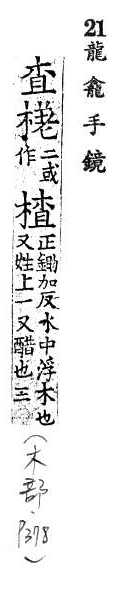 21 龍龕手鏡
查 二或作 楂 正鋤加反水中浮木也
又姓上一又醋也三
(木部.P378)